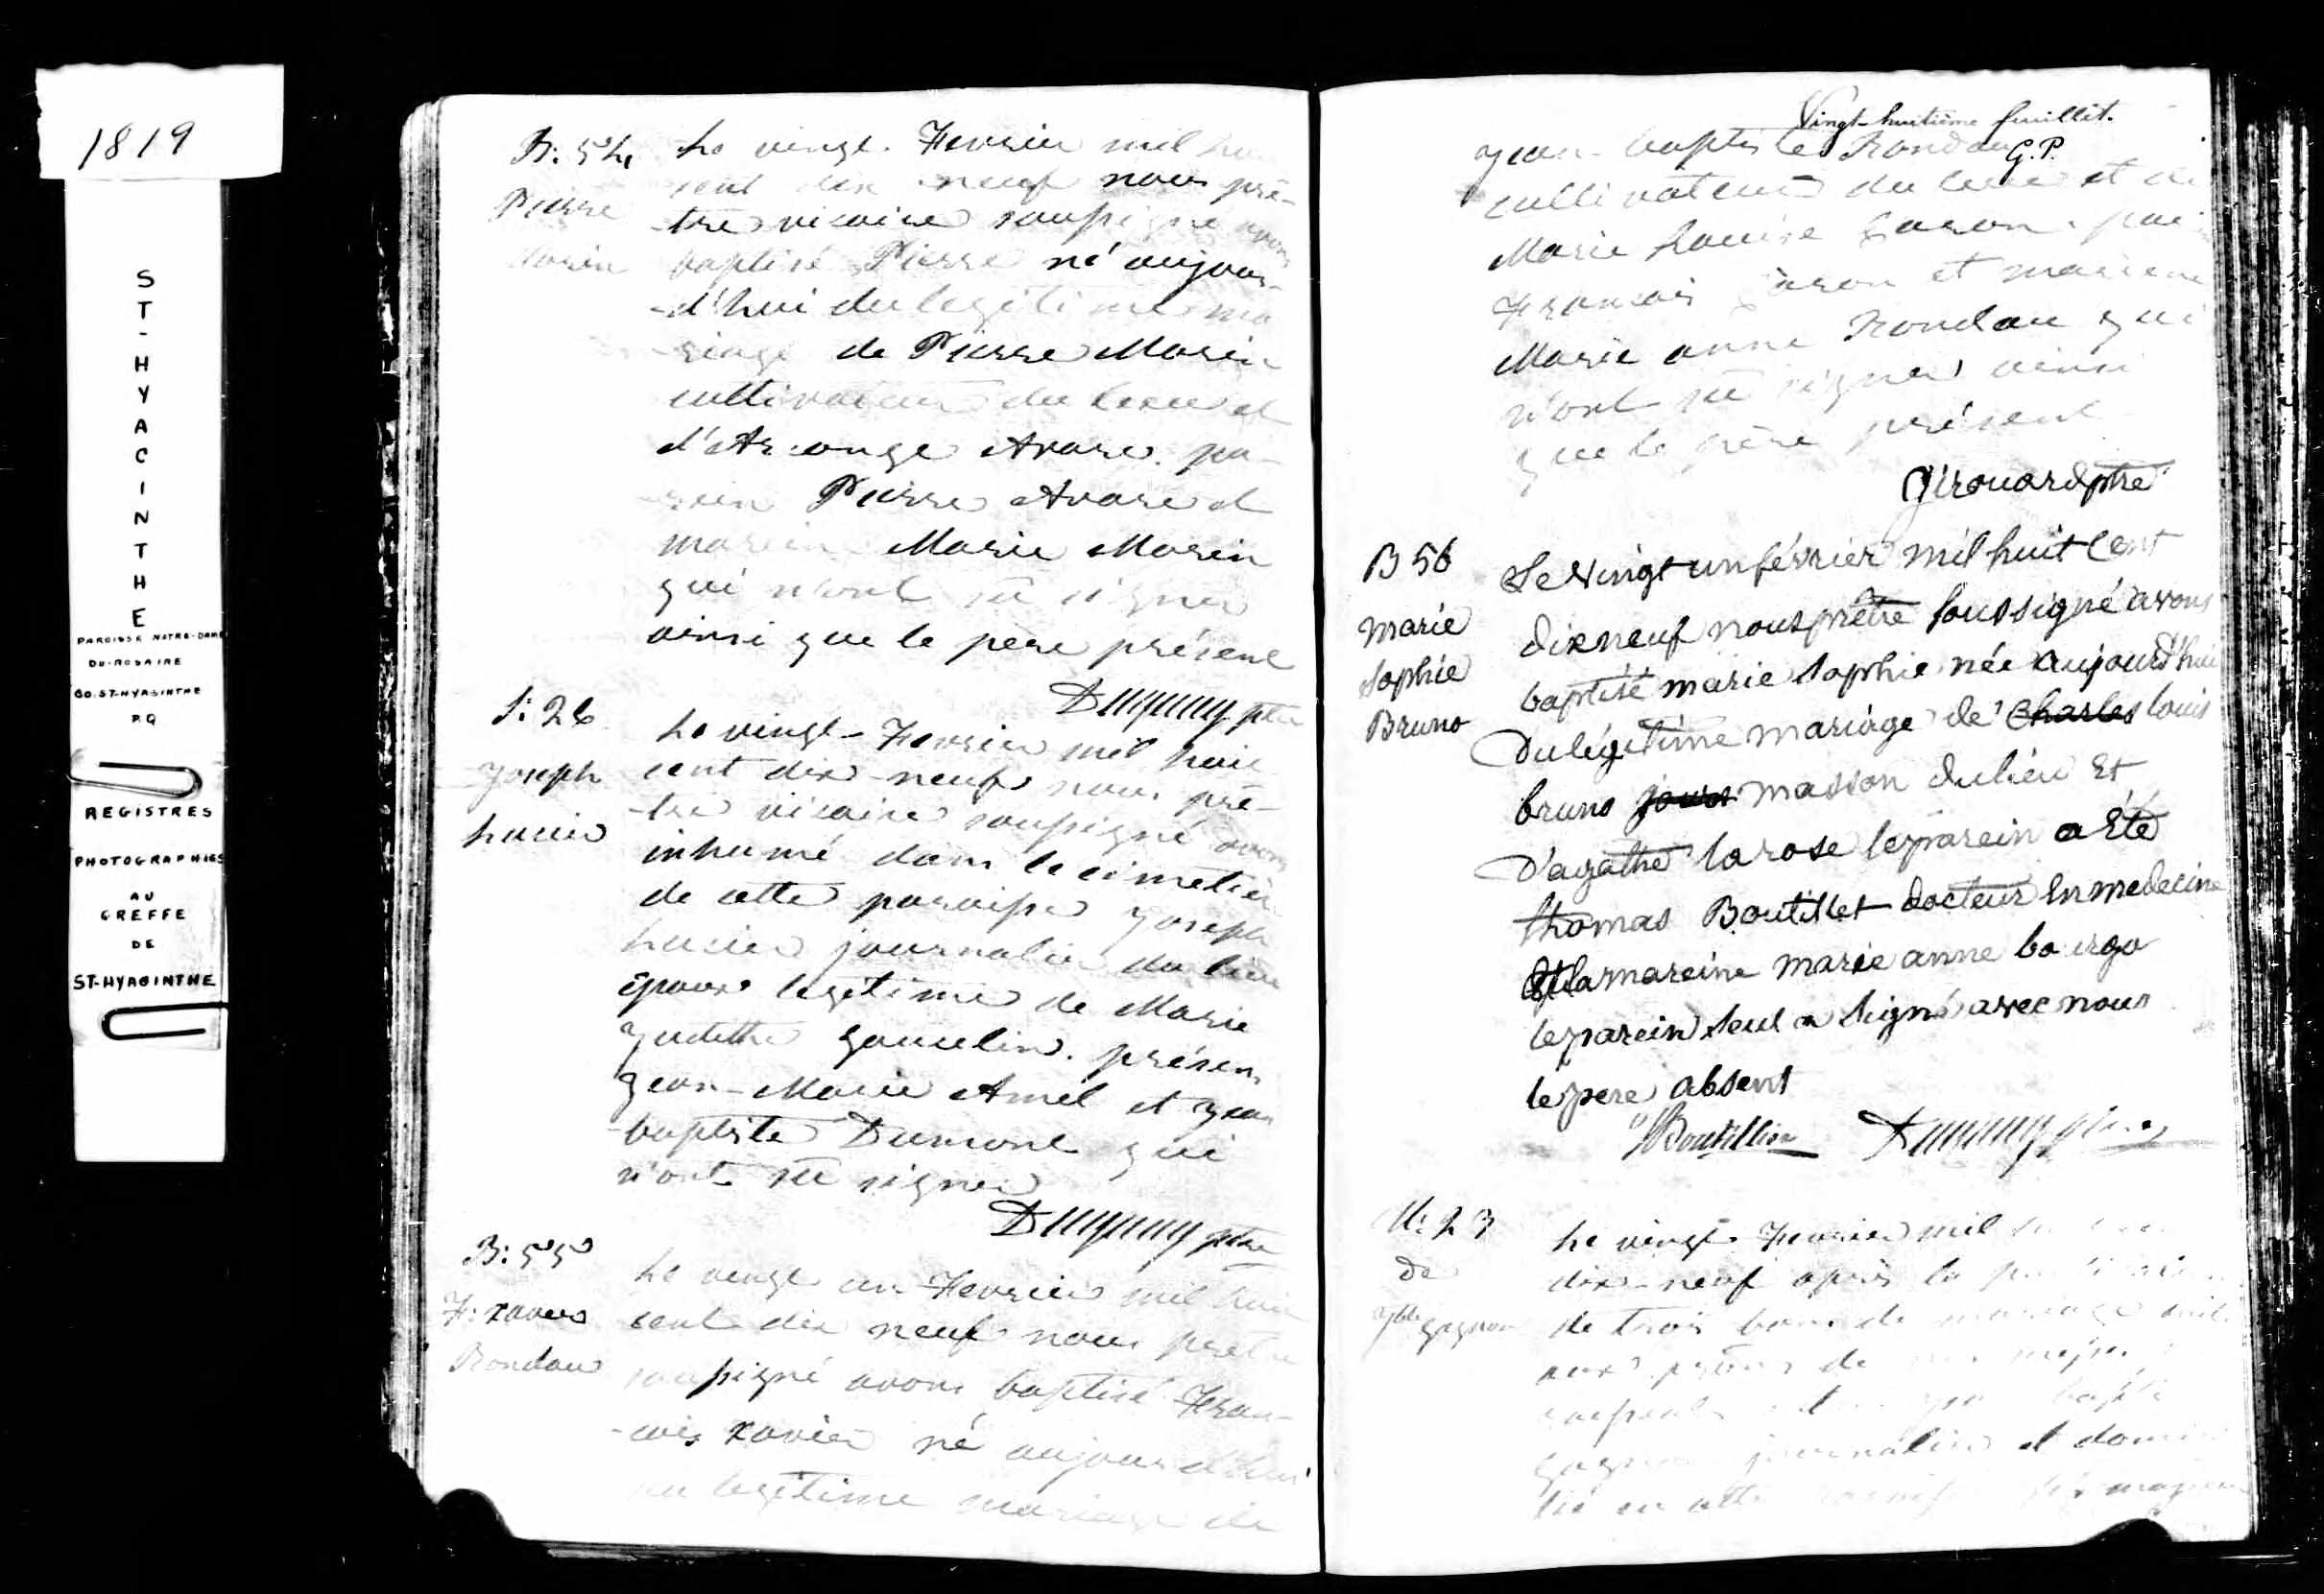 1819
ST-HYACINTHE
PAROISSE NOTRE-DAME
DU-ROSAIRE
CO. ST-HYACINTHE
P.Q
REGISTRES
PHOTOGRAPHIES
AU
GREFFE
DE
ST-HYACINTHE
B: 54
Pierre
Morin
Le vingt Fevrier mil
cent dix neuf nous prê-
tre vicaire soussigné avons
baptisé Pierre né aujour-
-d'hui du legitime ma
-riage de Pierre Morin
cultivateur du lieu et
d'Archange Avare. pa-
-rein Pierre Avare et
mareine Marie Morin
qui n'ont sû signer
ainsi que le pere présent
Dupuy ptre
S: 26
Joseph
Lucier
Le vingt Fevrier mil huit
cent dix-neuf nous prê-
-tre vicaire soussigné avons
inhumé dans le cimetier
de cette paroisse Joseph
Lucier journalier du lieu
Epoux legitime de Marie
Judithe Gauselin. présens
Jean-Marie Amel et Jean
baptiste Dumont qui
n'ont sû signer
Dupuy ptre
B: 55
F: xavier
Rondeau
Le vingt un Fevrier mil huit
cent dix neuf nous prêtre
soussigné avons baptisé Fran-
-cois xavier né aujourd'hui
du legitime mariage de
Vingt-huitième feuillet.
G.P.
Jean-baptiste Rondeau
cultivateur du lieu et de
Marie Louise Gason. parein
Francois Gason et mareine
Marie anne Rondeau qui
n'ont sû signer ainsi
que le père présent
Girouard ptre
B 56
marie
sophie
Bruno
Le vingt un février mil huit Cent
dixneuf nous prêtre soussigné avons
baptisé marie sophie née aujourd'hui
Du légitime mariage de Charles louis
bruno masson du lieu Et
D'agathe larose le parein a Eté
thomas Boutillet docteur En medecine
Et la mareine marie anne bourgo
le parein seul a signé avec nous
le pere absent
Boutillier Dupuy ptre
M: 23
De
Jbte gagnon
Le vingt Fevrier mil
dix-neuf après la
de trois bans de mariage
aux de
gagnon journalier et domi